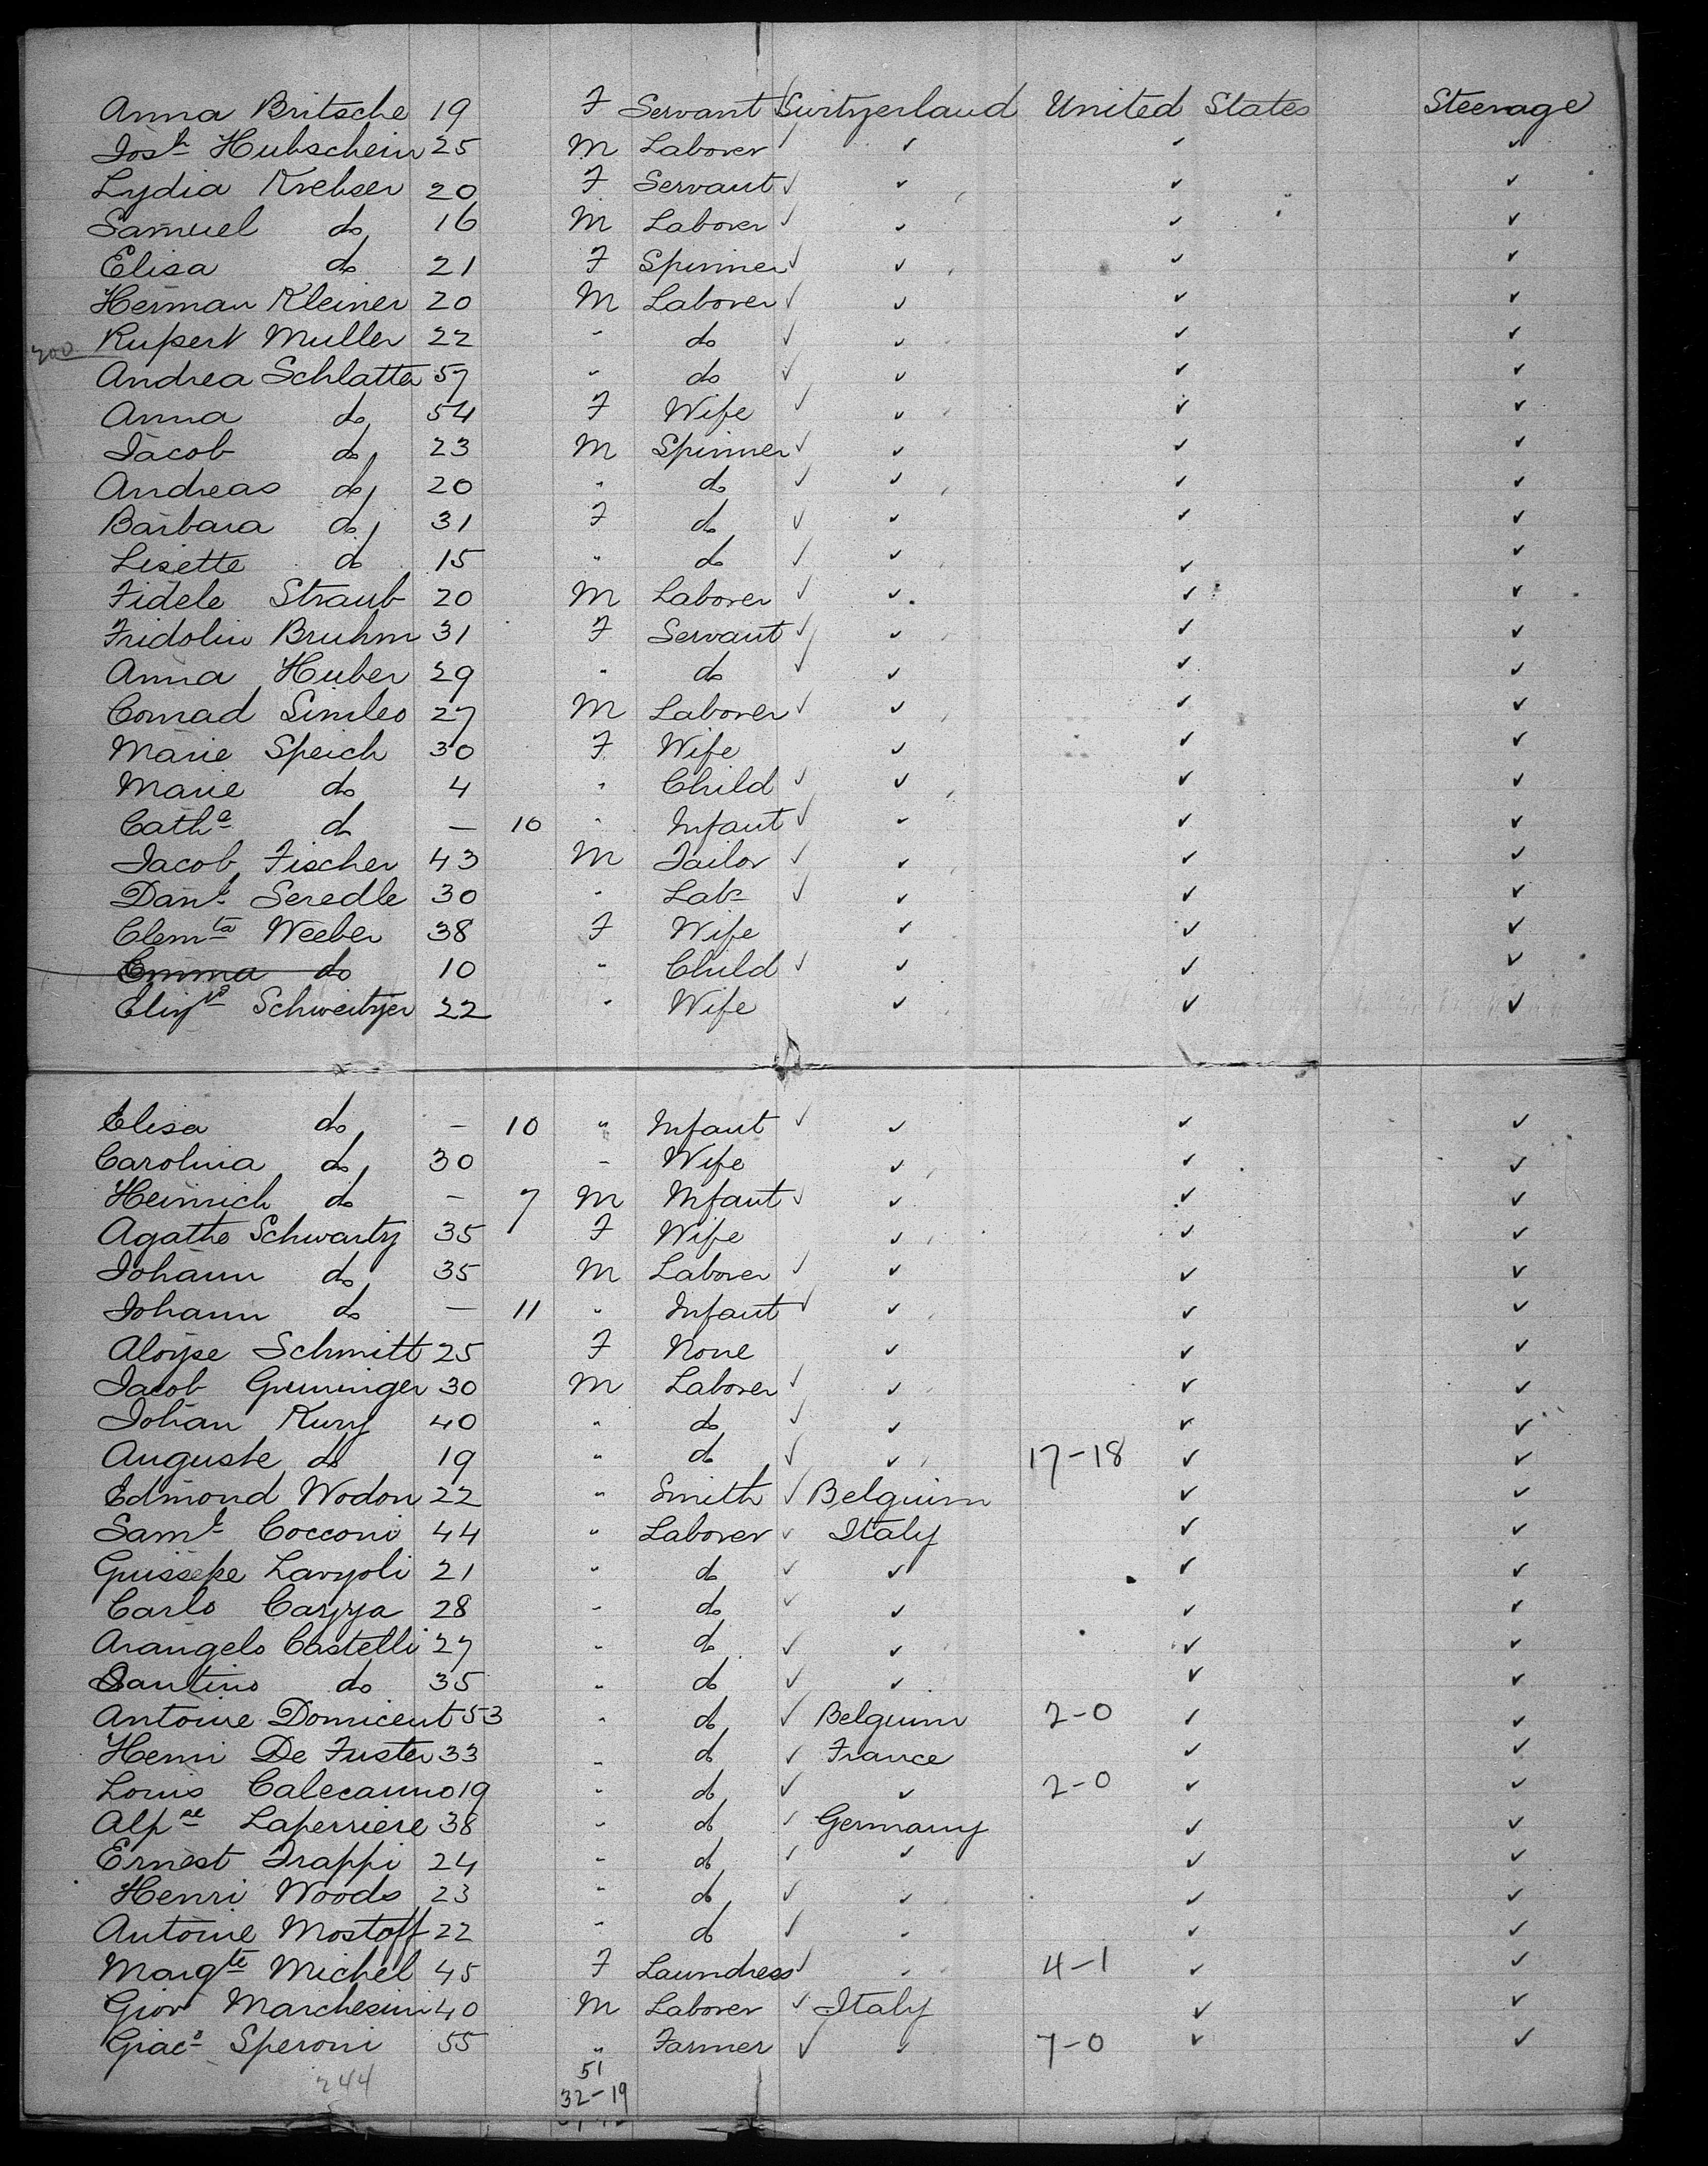 Anna Britsche 19 F Servant Switzerland United States Steerage
Josh Hubschein 25 M Laborer ✓ ✓ ✓
Lydia Krebser 20 F Servant ✓ ✓ ✓ ✓
Samuel do 16 M Laborer ✓ ✓ ✓ ✓
Elisa do 21 F Spinner ✓ ✓ ✓ ✓
Herman Kleiner 20 M Laborer ✓ ✓ ✓ ✓
200 Rupert Muller 22 " do ✓ ✓ ✓ ✓
Andrea Schlatta 57 " do ✓ ✓ ✓ ✓
Anna do 54 F Wife ✓ ✓ ✓ ✓
Jacob do 23 M Spinner ✓ ✓ ✓ ✓
Andreas do 20 " do ✓ ✓ ✓ ✓
Barbara do 31 F do ✓ ✓ ✓ ✓
Lisette do 15 " do ✓ ✓ ✓ ✓
Fidele Straub 20 M Laborer ✓ ✓ ✓ ✓
Fridolin Bruhm 31 F Servant ✓ ✓ ✓ ✓
Anna Huber 29 " do ✓ ✓ ✓ ✓
Conrad Simleo 27 M Laborer ✓ ✓ ✓ ✓
Marie Speich 30 F Wife ✓ ✓ ✓
Marie do 4 " Child ✓ ✓ ✓ ✓
Catha do — 10 " Infant ✓ ✓ ✓ ✓
Jacob Fischer 43 M Tailor ✓ ✓ ✓ ✓
Danl Seredle 30 " Labr ✓ ✓ ✓ ✓
Clemta Weeber 38 F Wife ✓ ✓ ✓
Emma do 10 " Child ✓ ✓ ✓ ✓
Schweitzer 22 " Wife ✓ ✓ ✓
Elisa do — 10 " Infant ✓ ✓ ✓ ✓
Carolina do 30 " Wife ✓ ✓ ✓
Heinrich do — 7 M Infant ✓ ✓ ✓ ✓
Agathe Schwartz 35 F Wife ✓ ✓ ✓
Johann do 35 M Laborer ✓ ✓ ✓ ✓
Johann do — 11 " Infant ✓ ✓ ✓ ✓
Aloyse Schmitt 25 F None ✓ ✓ ✓
Jacob Greninger 30 M Laborer ✓ ✓ ✓ ✓
Johan Kunz 40 " do ✓ ✓ ✓ ✓
Auguste do 19 " do ✓ ✓ 17-18 ✓ ✓
Edmond Wodon 22 " Smith ✓ Belguim ✓ ✓
Saml Cocconi 44 " Laborer ✓ Italy ✓ ✓
Guissepe Lavzoli 21 " do ✓ ✓ ✓ ✓
Carlo Cazzza 28 " do ✓ ✓ ✓ ✓
Arangelo Castelli 27 " do ✓ ✓ ✓ ✓
Santino do 35 " do ✓ ✓ ✓ ✓
Antoine Domicent 53 " do ✓ Belguim 2-0 ✓ ✓
Henri De Fuster 33 " do ✓ France ✓ ✓
Louis Calecanno 19 " do ✓ ✓ 2-0 ✓ ✓
Alpse Laperriere 38 " do ✓ Germany ✓ ✓
Ernest Trappi 24 " do ✓ ✓ ✓ ✓
Henri Woods 23 " do ✓ ✓ ✓ ✓
Antoine Mostoff 22 " do ✓ ✓ ✓ ✓
Margte Michel 45 F Laundress ✓ ✓ 4-1 ✓ ✓
Giov Marchesini 40 M Laborer ✓ Italy ✓ ✓
Giaco Speroni 55 " Farmer ✓ ✓ 7-0 ✓ ✓
244 51
32-19